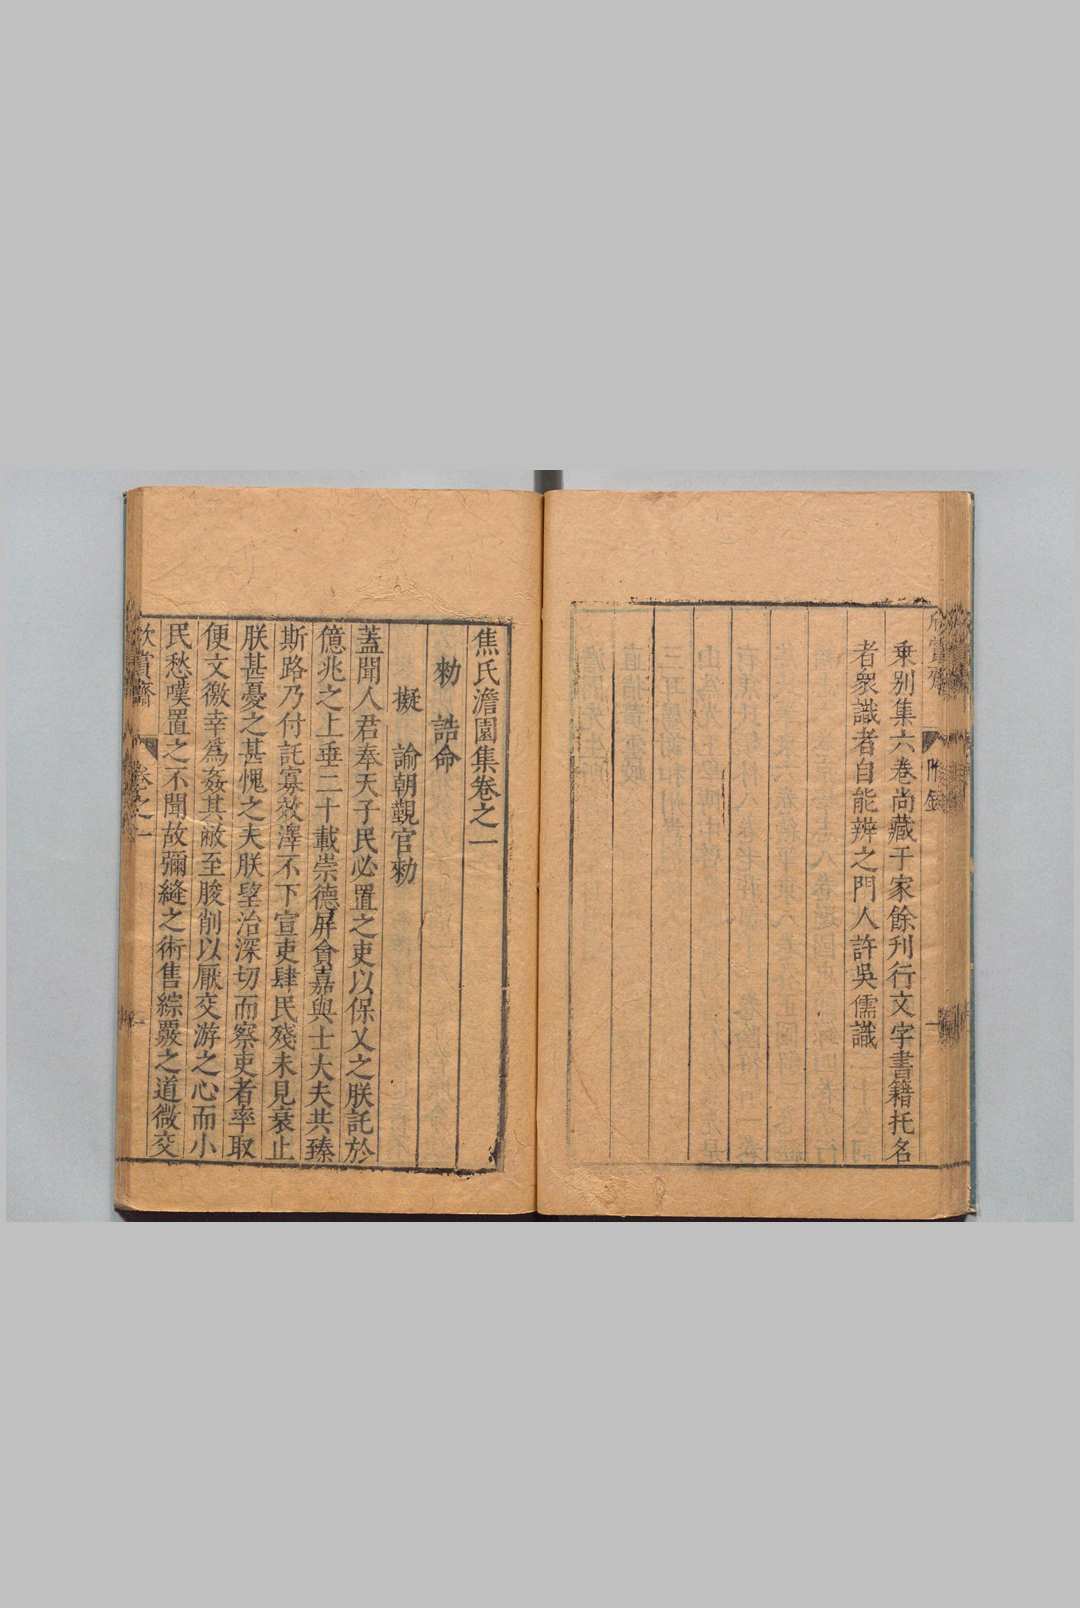 乗别集六卷尚藏于家餘刋行文字書籍托名
者衆識者自能辨之門人許吳儒識
焦氏澹園集卷之一
勑 誥命
擬 諭朝覲官勑
蓋聞人君奉天子民必置之吏以保乂之朕託於
億兆之上垂二十載崇德屏貪嘉與士大夫共臻
斯路乃付託寡效澤不下宣吏肆民殘未見衰止
朕甚憂之甚愧之夫朕望治深切而察吏者率取
便文徼幸為姦其敝至朘削以厭交游之心而小
民愁嘆置之不聞故彌縫之術售綜覈之道微交
欣賞齋 卷之一 一